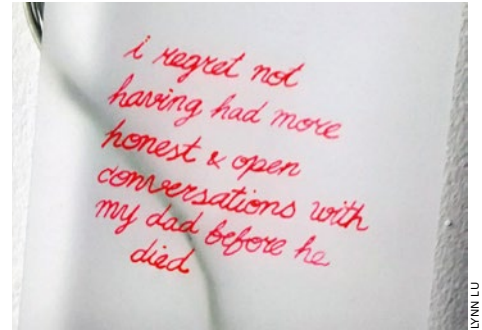 i regret not
having had more
honest & open
conversations with
my dad before he
died
LYNN LU